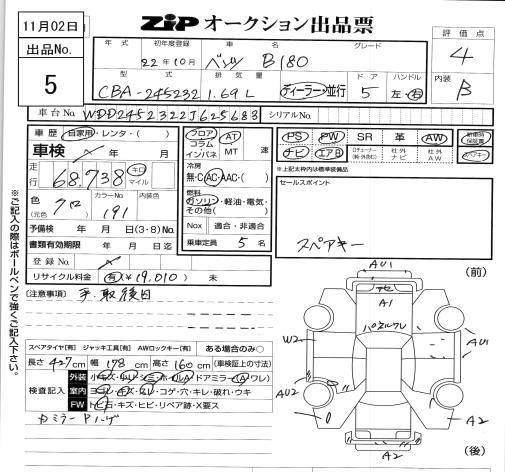 11月02日
出品No.
5
ZIP オークション出品票
評価点
4
内装
B
年式 初年度登録 車名 グレード
22年10月 ベンツ B180
型式 排気量 ドア ハンドル
CBA-245232 1.69L ディーラー・並行 5 左・右
車台No. WDD2452322J625683 シリアルNo.
車歴 自家用・レンタ・( )
車検 年 月
走行 68,738 キロ マイル
色 (元色) クロ カラーNo. 191 内装色
予備検 年 月 日(3・8)No.
書類有効期限 年 月 日迄
登録No.
リサイクル料金 (有)¥19,010)・無
フロア コラム インパネ AT MT 速
冷房
無・C・AC・AAC・( )
燃料
ガソリン・軽油・電気・その他( )
Nox 適合・非適合
乗車定員 5 名
PS PW SR 革 AW 新車時保証書
ナビ エアB 社外ナビ 社外AW スペアキー
※上記太枠内は標準装備品
セールスポイント
スペアキー
[注意事項] 予.取後日
スペアタイヤ[有] ジャッキ工具[有] AWロックキー[有] ある場合のみ○
長さ 427cm 幅 178cm 高さ 160cm (車検証上の寸法)
検査記入
外装
室内 ヨゴレ・キズ・スレ・コゲ・穴・キレ・破れ・ウキ
FW トビ石・キズ・ヒビ・リペア跡・X要ス
(前)
AU1
A1
W2
AU1
AU2
A2
A2
(後)
※ご記入の際はボールペンで強くご記入下さい。